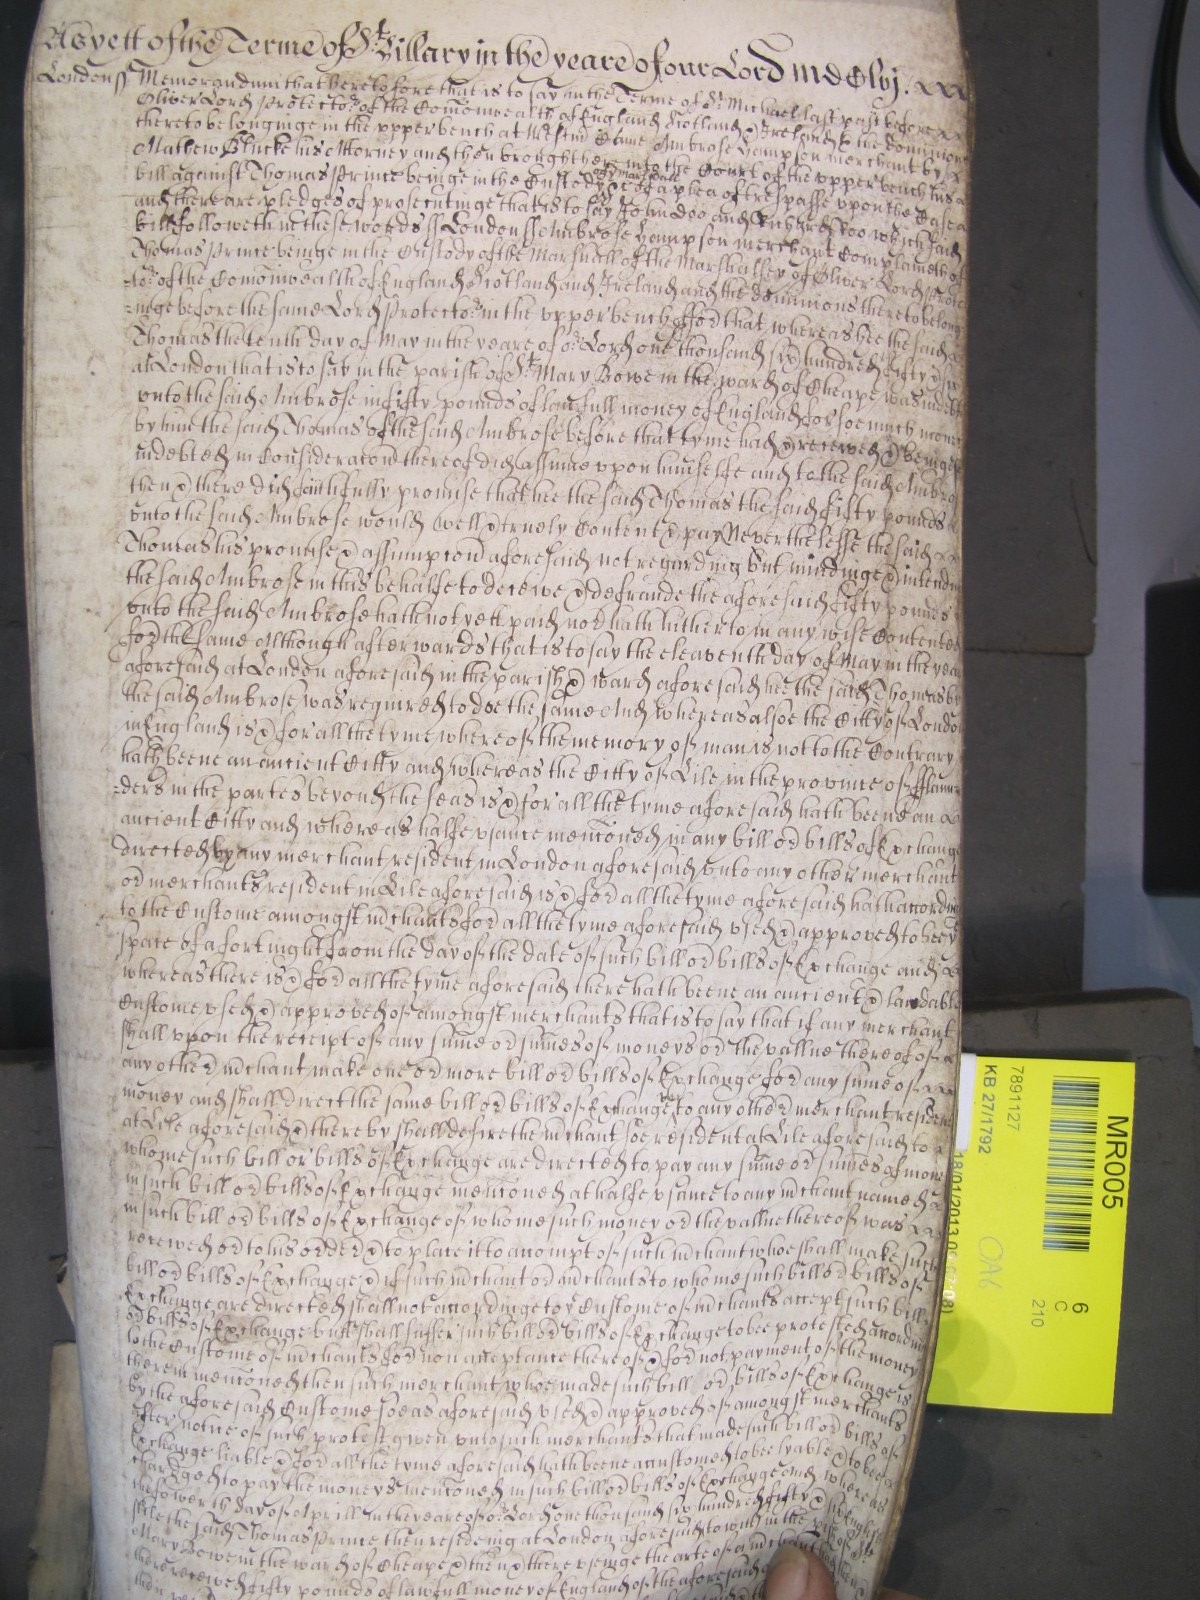 As yett of the Terme of St Hillary in the yeare of our Lord MdClvj.
London ss Memorandum that heretofore that is to say in the Terme of St Michaell last past before
Oliver Lord Protector of the Comonwealth of England Scotland & Ireland & the dominions
thereto belonginge in the upper bench at Westmr Came Ambrose Hampson merchant by
Mathew Blucke his Attorney and then brought here into the Court of the upper bench his
bill against Thomas Prince beinge in the Custody of the marshall &c of a plea of trespasse upon the Case
and there are pledges of prosecutinge that is to say John doo and Richard Roo which said
bill followeth in these words ss London ss Ambrose Hampson merchant Complaineth of
Thomas Prince beinge in the Custody of the Marshall of the Marshallsey of Oliver Lord Protec
tor of the Comonwealth of England Scotland and Ireland and the dominions thereto belong
inge before the same Lord Protector in the upper bench ffor that whereas hee the said
Thomas the tenth day of May in the yeare of or Lord one thousand six hundred fifty & six
at London that is to say in the parish of St Mary Bowe in the ward of Cheape was indebt
unto the said Ambrose in fifty pounds of lawfull money of England for soe much money
by him the said Thomas of the said Ambrose before that tyme had & receaved & beinge
indebted in Consideracon thereof did assume upon himselfe and to the said Ambro
then & there did faithfully promise that hee the said Thomas the said fifty pounds
unto the said Ambrose would well & truely Content & pay Neverthelesse the said
Thomas his promise & assumpcon aforesaid not regarding but mindinge & intendin
the said Ambrose in this behalfe to deceive & defraude the aforesaid fifty pounds
unto the said Ambrose hath not yett paid nor hath hitherto in any wise Contented
for the same Although afterwards that is to say the eleaventh day of May in the yeare
aforesaid at London aforesaid in the parish & ward aforesaid hee the said Thomas by
the said Ambrose was required to doe the same And whereas alsoe the Citty of London
in England is & for all the tyme whereof the memory of man is not to the Contrary
hath beene an ancient Citty and whereas the Citty of Lile in the province of fflaun
ders in the partes beyond the seas is & for all the tyme aforesaid hath beene an
ancient Citty and whereas halfe usance mencioned in any bill or bills of Exchange
directed by any merchant resident in London aforesaid unto any other merchant
or merchants resident in Lile aforesaid is & for all the tyme aforesaid hath accordin
to the Custome amongst mchants for all the tyme aforesaid used & approved to bee
space of a fortnight from the day of the date of such bill or bills of Exchange and
whereas there is & for all the tyme aforesaid there hath beene an ancient & laudable
Custome used & approved of amongst merchants that is to say that if any merchant
shall upon the receipt of any sume or sumes of moneys or the vallue thereof of
any other mchant make one or more bill or bills of Exchange for any sume of
money and shall direct the same bill or bills of Exchange to any other merchant resident
at Lile aforesaid & thereby shall desire the mchant soe resident at Lile aforesaid to
whome such bill or bills of Exchange are directed to pay any sume or sumes of mone
in such bill or bills of Exchange mencioned at halfe usance to any mchant named
in such bill or bills of Exchange of whome such money or the vallue thereof was
receaved or to his order & to place it to accompt of such mchant whoe shall make such
bill or bills of Exchange & if such mchant or mchants to whome such bill or bills of
Exchange are directed shall not accordinge to ye Custome of mchants accept such bill
or bills of Exchange but shall suffer such bill or bills of Exchange to bee protested accordin
to the Custome of mchants for non acceptance thereof & for not payment of the money
therein mencioned then such merchant whoe made such bill or bills of Exchange is
by the aforesaid Custome soe as aforesaid used & approved of amongst merchants
after notice of such protest given unto such merchants that made such bill or bills of
Exchange liable & for all the tyme aforesaid hath beene accustomed to bee lyable & to bee
charged to pay the moneys mencioned in such bill or bills of Exchange and whereas
the fowerth day of Aprill in the yeare of or Lord one thousand six hundred fifty & six English
stile the said Thomas Prince then residing at London aforesaid to witt in the pish of St
Mary Bowe in the ward of Cheape & then & there useinge the arte of a mchant
there receaved fifty pounds of lawfull money of England of the aforesaid
MR005
7891127
KB 27/1792
18/01/2013
6
C
210